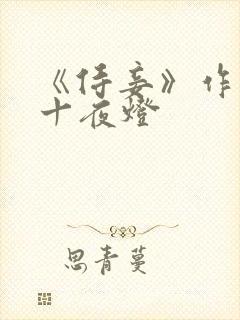 《侍妾》作
十夜燈
思青蔓